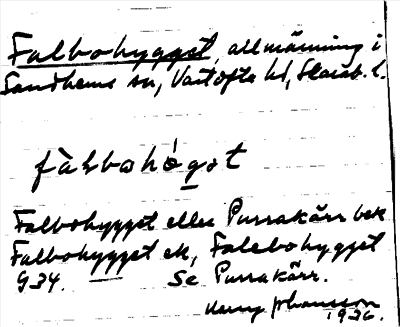 Falbohygget, allmänning i
Sandhems sn, Vartofta hd, Skarab. l.
fàlbohögət
Falbohygget eller Purrakärr bek
Falbohygget ek, Falebohygget
G34. Se Purrakärr.
Johansson
1936.